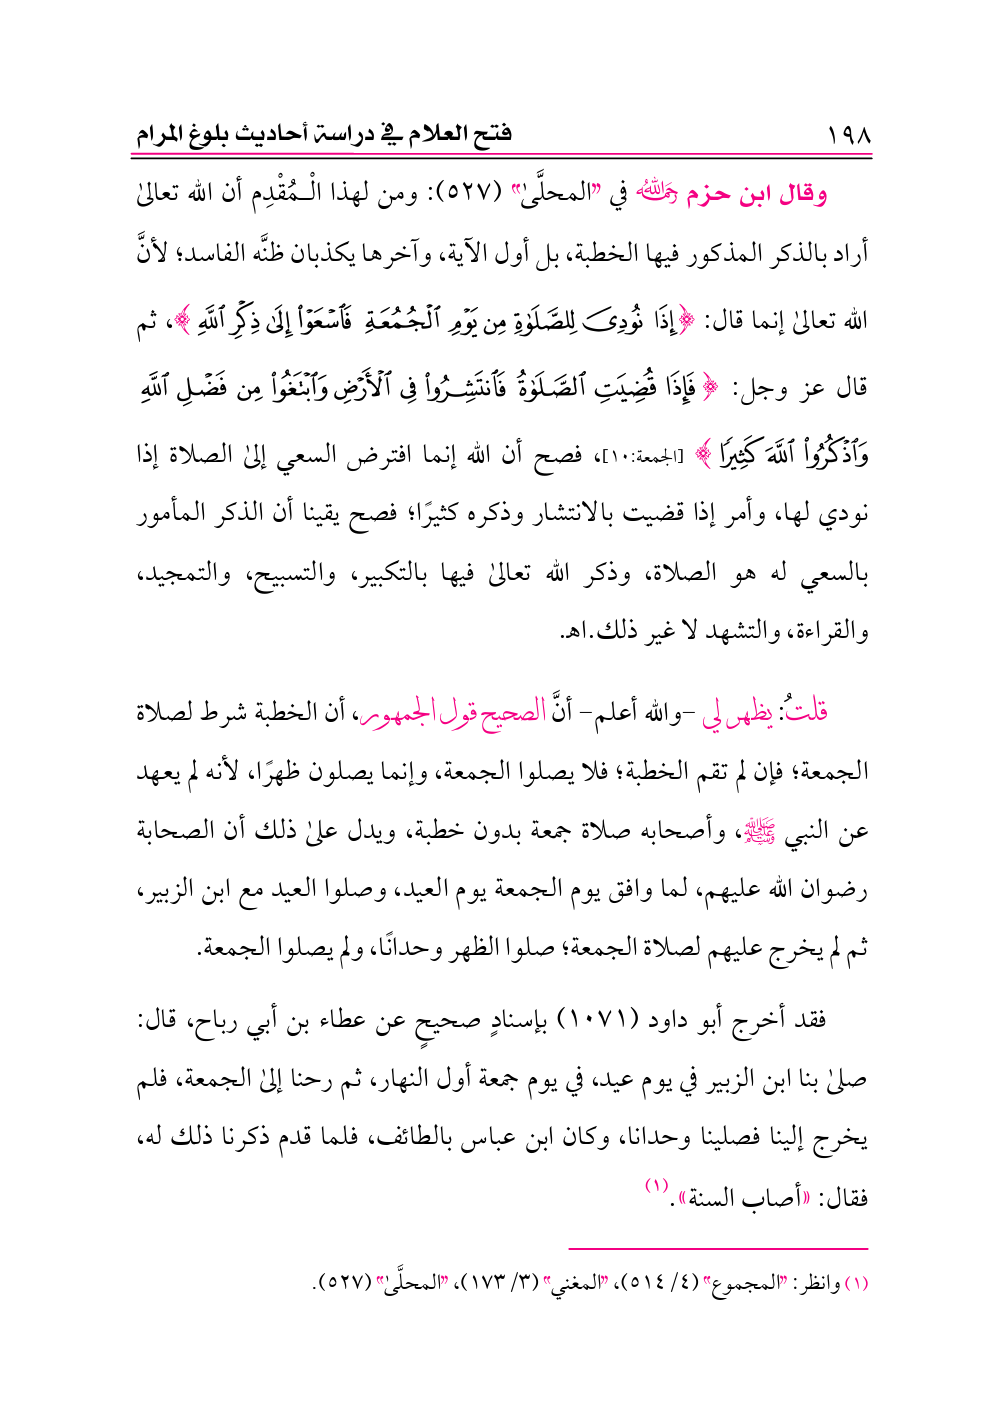 ١٩٨ فتح العلام في دراسة أحاديث بلوغ المرام
وقال ابن حزم رحمه الله في "المحلَّىٰ" (٥٢٧): ومن لهذا الْـمُقْدِم أن الله تعالىٰ
أراد بالذكر المذكور فيها الخطبة، بل أول الآية، وآخرها يكذبان ظنَّه الفاسد؛ لأنَّ
الله تعالىٰ إنما قال: ﴿إِذَا نُودِىَ لِلصَّلَوٰةِ مِن يَوْمِ ٱلْجُمُعَةِ فَٱسْعَوْا۟ إِلَىٰ ذِكْرِ ٱللَّهِ﴾، ثم
قال عز وجل: ﴿فَإِذَا قُضِيَتِ ٱلصَّلَوٰةُ فَٱنتَشِرُوا۟ فِى ٱلْأَرْضِ وَٱبْتَغُوا۟ مِن فَضْلِ ٱللَّهِ
وَٱذْكُرُوا۟ ٱللَّهَ كَثِيرًا﴾ [الجمعة:١٠]، فصح أن الله إنما افترض السعي إلىٰ الصلاة إذا
نودي لها، وأمر إذا قضيت بالانتشار وذكره كثيرًا؛ فصح يقينا أن الذكر المأمور
بالسعي له هو الصلاة، وذكر الله تعالىٰ فيها بالتكبير، والتسبيح، والتمجيد،
والقراءة، والتشهد لا غير ذلك.اهـ.
قلتُ: يظهر لي -والله أعلم- أنَّ الصحيح قول الجمهور، أن الخطبة شرط لصلاة
الجمعة؛ فإن لم تقم الخطبة؛ فلا يصلوا الجمعة، وإنما يصلون ظهرًا، لأنه لم يعهد
عن النبي ﷺ، وأصحابه صلاة جمعة بدون خطبة، ويدل علىٰ ذلك أن الصحابة
رضوان الله عليهم، لما وافق يوم الجمعة يوم العيد، وصلوا العيد مع ابن الزبير،
ثم لم يخرج عليهم لصلاة الجمعة؛ صلوا الظهر وحدانًا، ولم يصلوا الجمعة.
فقد أخرج أبو داود (١٠٧١) بإسنادٍ صحيحٍ عن عطاء بن أبي رباح، قال:
صلىٰ بنا ابن الزبير في يوم عيد، في يوم جمعة أول النهار، ثم رحنا إلىٰ الجمعة، فلم
يخرج إلينا فصلينا وحدانا، وكان ابن عباس بالطائف، فلما قدم ذكرنا ذلك له،
فقال: «أصاب السنة».(١)
(١) وانظر: "المجموع" (٤/ ٥١٤)، "المغني" (٣/ ١٧٣)، "المحلَّىٰ" (٥٢٧).